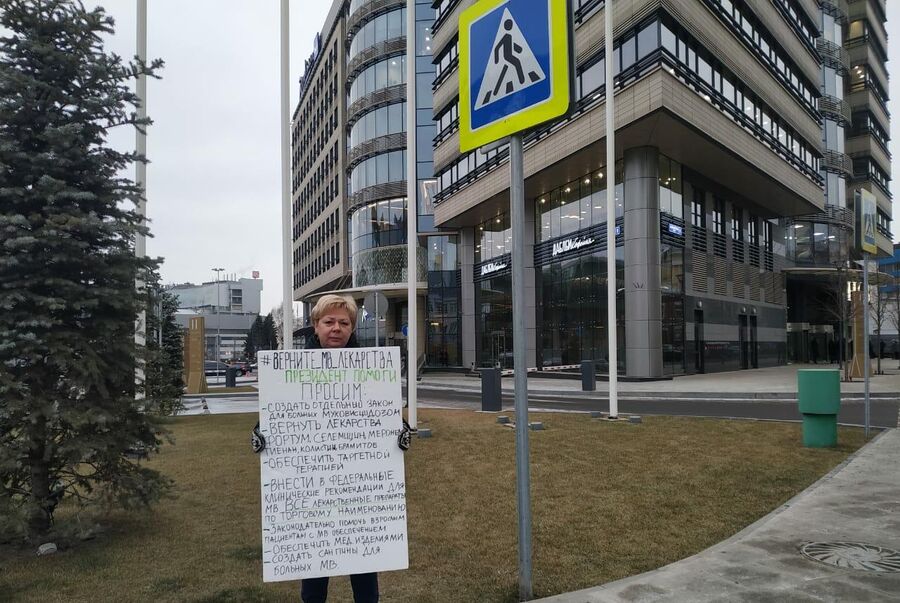 #ВЕРНИТЕ_МВ_ЛЕКАРСТВА
ПРЕЗИДЕНТ ПОМОГИ
ПРОСИМ:
-СОЗДАТЬ ОТДЕЛЬНЫЙ ЗАКОН
ДЛЯ БОЛЬНЫХ МУКОВИСЦИДОЗОМ
-ВЕРНУТЬ ЛЕКАРСТВА
ФОРТУМ, СЕЛЕМИЦИН, МЕРОНЕМ
ТИЕНАМ, КОЛИСТИН, БРАМИТОБ
-ОБЕСПЕЧИТЬ ТАРГЕТНОЙ
ТЕРАПИЕЙ
-ВНЕСТИ В ФЕДЕРАЛЬНЫЕ
КЛИНИЧЕСКИЕ РЕКОМЕНДАЦИИ ДЛЯ
МВ ВСЕ ЛЕКАРСТВЕННЫЕ ПРЕПАРАТЫ
ПО ТОРГОВОМУ НАИМЕНОВАНИЮ
-ЗАКОНОДАТЕЛЬНО ПОМОЧЬ ВЗРОСЛЫМ
ПАЦИЕНТАМ С МВ ОБЕСПЕЧЕНИЕМ
-ОБЕСПЕЧИТЬ МЕД.ИЗДЕЛИЯМИ
-СОЗДАТЬ САНПИНЫ ДЛЯ
БОЛЬНЫХ МВ.